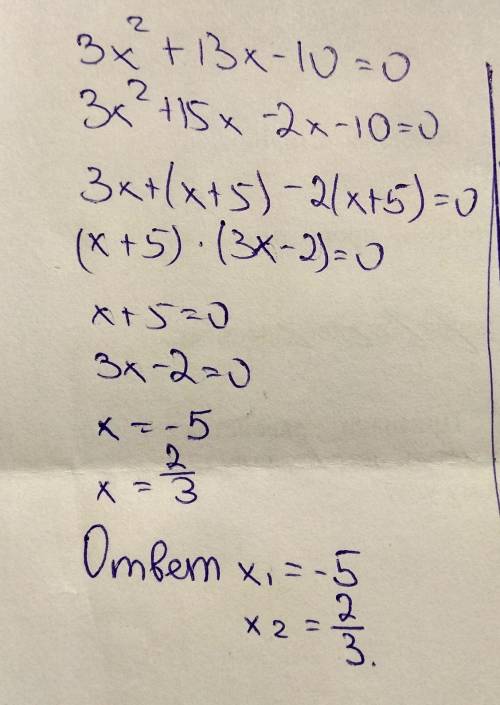 3x² + 13x - 10 = 0
3x² + 15x - 2x - 10 = 0
3x + (x + 5) - 2(x + 5) = 0
(x + 5) · (3x - 2) = 0
x + 5 = 0
3x - 2 = 0
x = -5
x = 2/3
Ответ x₁ = -5
x₂ = 2/3.